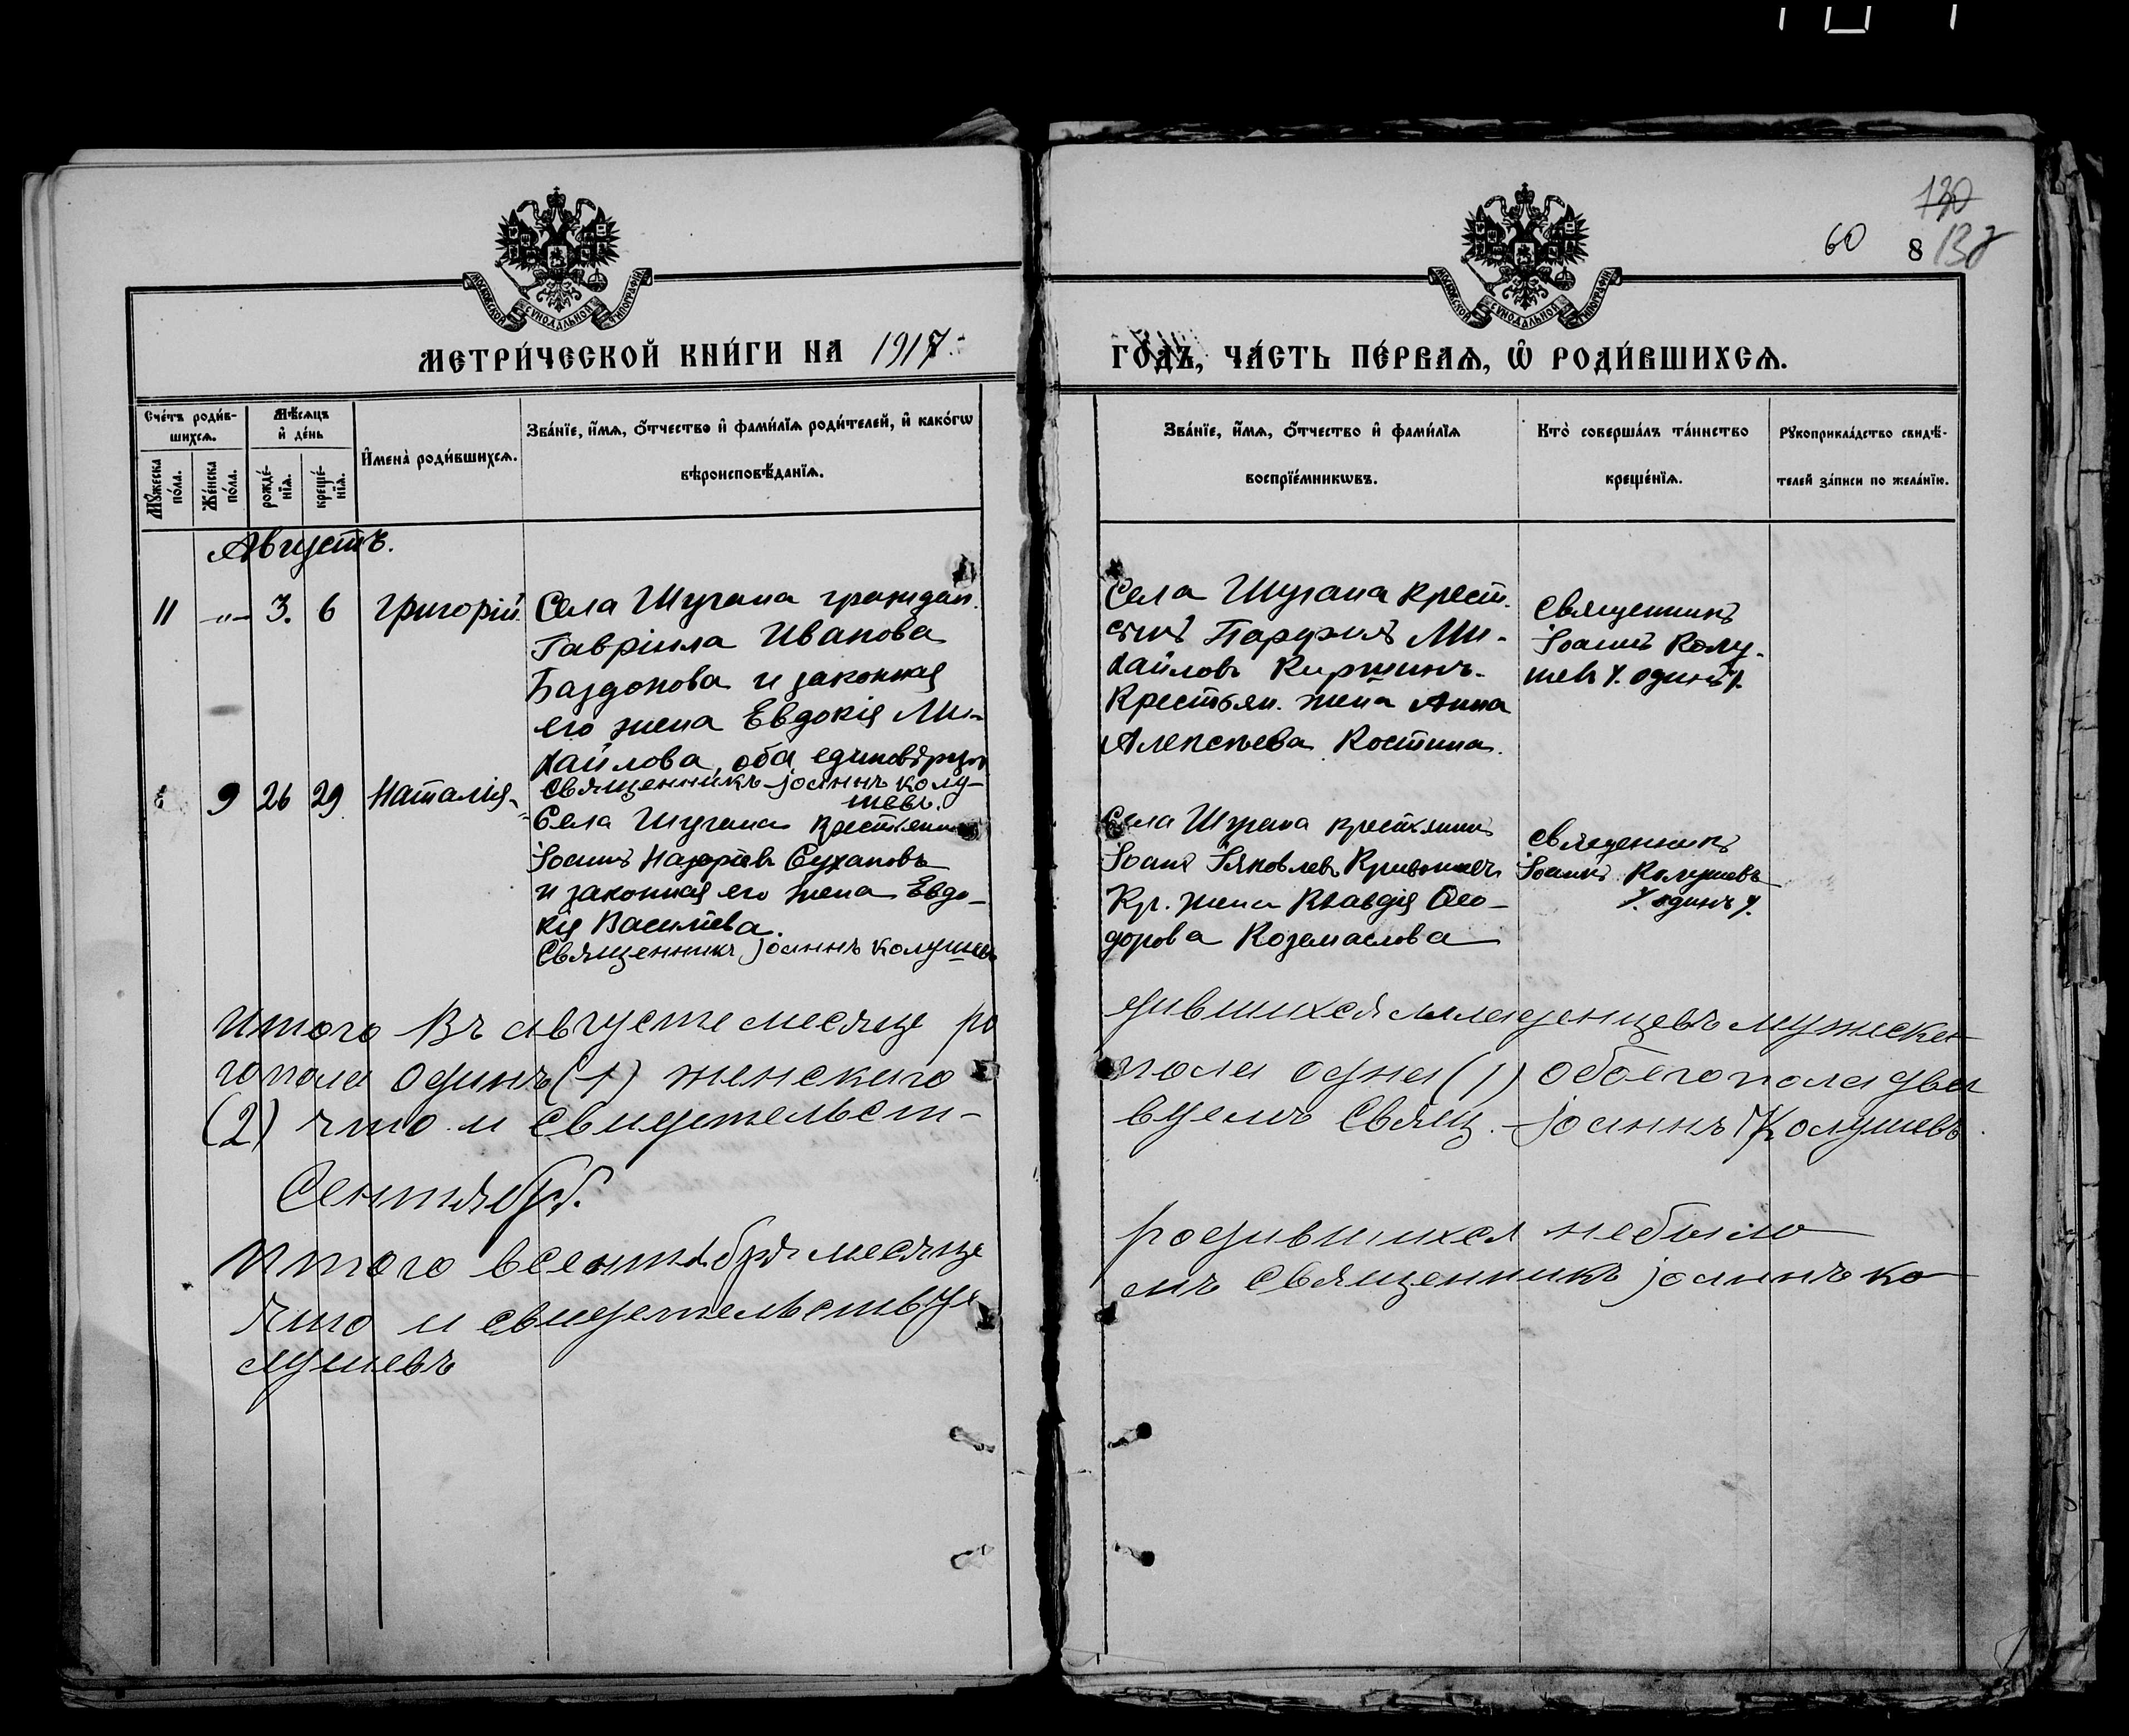 130
60 8 138
МОСКОВСКОЙ СѴНОДАЛЬНОЙ ТИПОГРАФІИ
МОСКОВСКОЙ СѴНОДАЛЬНОЙ ТИПОГРАФІИ
МЕТРИ́ЧЕСКОЙ КНИ́ГИ НА 1917
ГО́ДЪ, ЧА́СТЬ ПЕ́РВАѦ, Ѡ РОДИ́ВШИХСѦ.
Сче́тъ роди́в-
шихсѧ.
Мꙋ́жеска по́ла.
Же́нска по́ла.
Мѣ́сѧцъ
и҆ де́нь
рожде́-
нїѧ.
креще́-
нїѧ.
И҆мена̀ роди́вшихсѧ.
Зва́нїе, и҆́мѧ, ѻ҆́тчество и҆ фами́лїѧ роди́телей, и҆ како́гѡ
вѣроисповѣ́данїѧ.
Зва́нїе, и҆́мѧ, ѻ҆́тчество и҆ фами́лїѧ
воспрїе́мникѡвъ.
Кто̀ соверша́лъ та́инство
креще́нїѧ.
Рꙋкоприкла́дство свидѣ́-
телей за́писи по жела́нїю.
Августъ.
11 -"- 3. 6 Григорій.
Села Шугана граждан.
Гавріила Иванова
Баздонова и законная
его жена Евдокія Ми-
хайлова, оба единовѣрцы
Священникъ Іоаннъ Колу-
шевъ.
Села Шугана крест.
Михайловъ Киршинъ.
Крестьян. жена Анна
Алексѣева Костина.
Священникъ
Іоаннъ Колу-
шевъ
9 26 29 Наталія
Села Шугана крестьянинъ
Іоаннъ Назарьевъ Сухановъ
и законная его жена Евдо-
кія Васильева.
Священникъ Іоаннъ Колушевъ
Села Шугана крестьянинъ
Іоаннъ Яковлевъ
Кр. жена Клавдія Ѳео-
дорова Коземаслова
Священникъ
Іоаннъ Колушевъ
Итого въ августе месяце ро
дившихся младенцевъ мужска
го пола одинъ (1) женскаго
пола одна (1) обоего пола два
(2) что и свидетельст-
вуемъ Свящ. Іоаннъ Колушевъ
Сентябрь.
Итого в сентябре месяце
родившихся небыло
что и свидетельствуе
мъ Священникъ Іоаннъ Ко
лушевъ